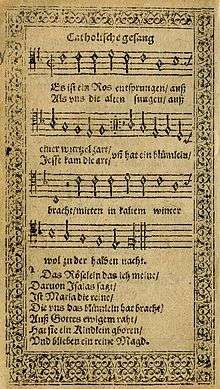 Catholische gesang
Es ist ein Ros entsprungen/ auß
Als vns die alten sungen/ auß
einer wurtzel zart/
Jesse kam die art/
vñ hat ein blümlein/
bracht/ mitten in kaltem winter
wol zu der halben nacht.
2. Das Röselein das ich meine/
Daruon Isaias sagt/
Ist Maria die reine/
Die vns das blümlein hat bracht/
Auß Gottes ewigem raht/
Hat sie ein Kindlein gboren/
Vnd blieben ein reine Magd.